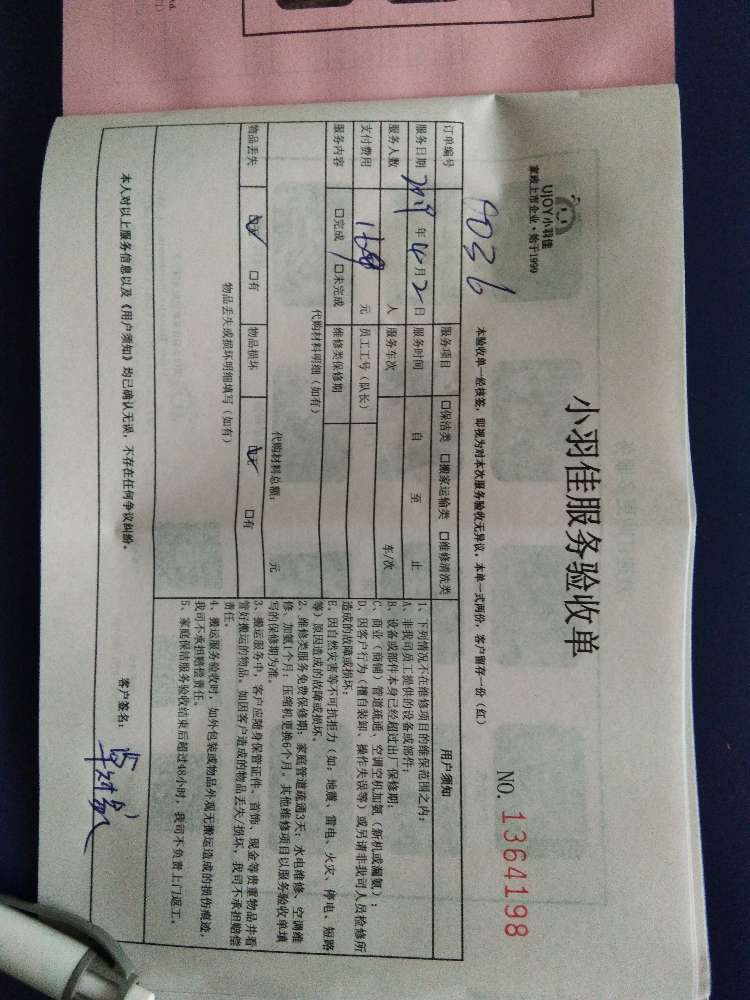 UJOY小羽佳
家政上市企业·始于1999
小羽佳服务验收单
NO. 1364198
本验收单一经核签,即视为对本次服务验收无异议。本单一式两份,客户留存一份(红)
订单编号 A036 服务项目 □保洁类 □搬家运输类 □维修清洗类
服务日期 2019年4月2日 服务时间 自 至 止
服务人数 人 服务车次 车/次
支付费用 元 员工工号(队长)
服务内容 □完成 □未完成 维修类保修期
代购材料明细(如有)
代购材料总额: 元
物品丢失 □无 □有 物品损坏 □无 □有
物品丢失或损坏明细填写(如有)
用户须知
1、下列情况不在维修项目的维保范围之内:
A、非我司员工提供的设备或部件;
B、设备或部件本身已经超过出厂保修期;
C、商业(商铺)管道疏通、空调空机加氨(新机或漏氨);
D、因客户行为(擅自装卸、操作失误等)或另请非我司人员检修所
造成的故障或损坏;
E、因自然灾害等不可抗拒力(如:地震、雷电、火灾、停电、短路
等)原因造成的故障或损坏。
2、维修类服务免费保修期:家庭管道疏通3天;水电维修、空调维
修、加氨1个月;压缩机更换6个月。其他维修项目以服务验收单填
写的保修期为准。
3、搬运服务中,客户应随身保管证件、首饰、现金等贵重物品并看
管好搬运的物品。如因客户造成的物品丢失/损坏,我司不承担赔偿
责任。
4、搬运服务验收时,如外包装或物品外观无搬运造成的损伤痕迹,
我司不承担赔偿责任。
5、家庭保洁服务验收结束后超过48小时,我司不负责上门返工。
本人对以上服务信息以及《用户须知》均已确认无误,不存在任何争议纠纷。
客户签名: